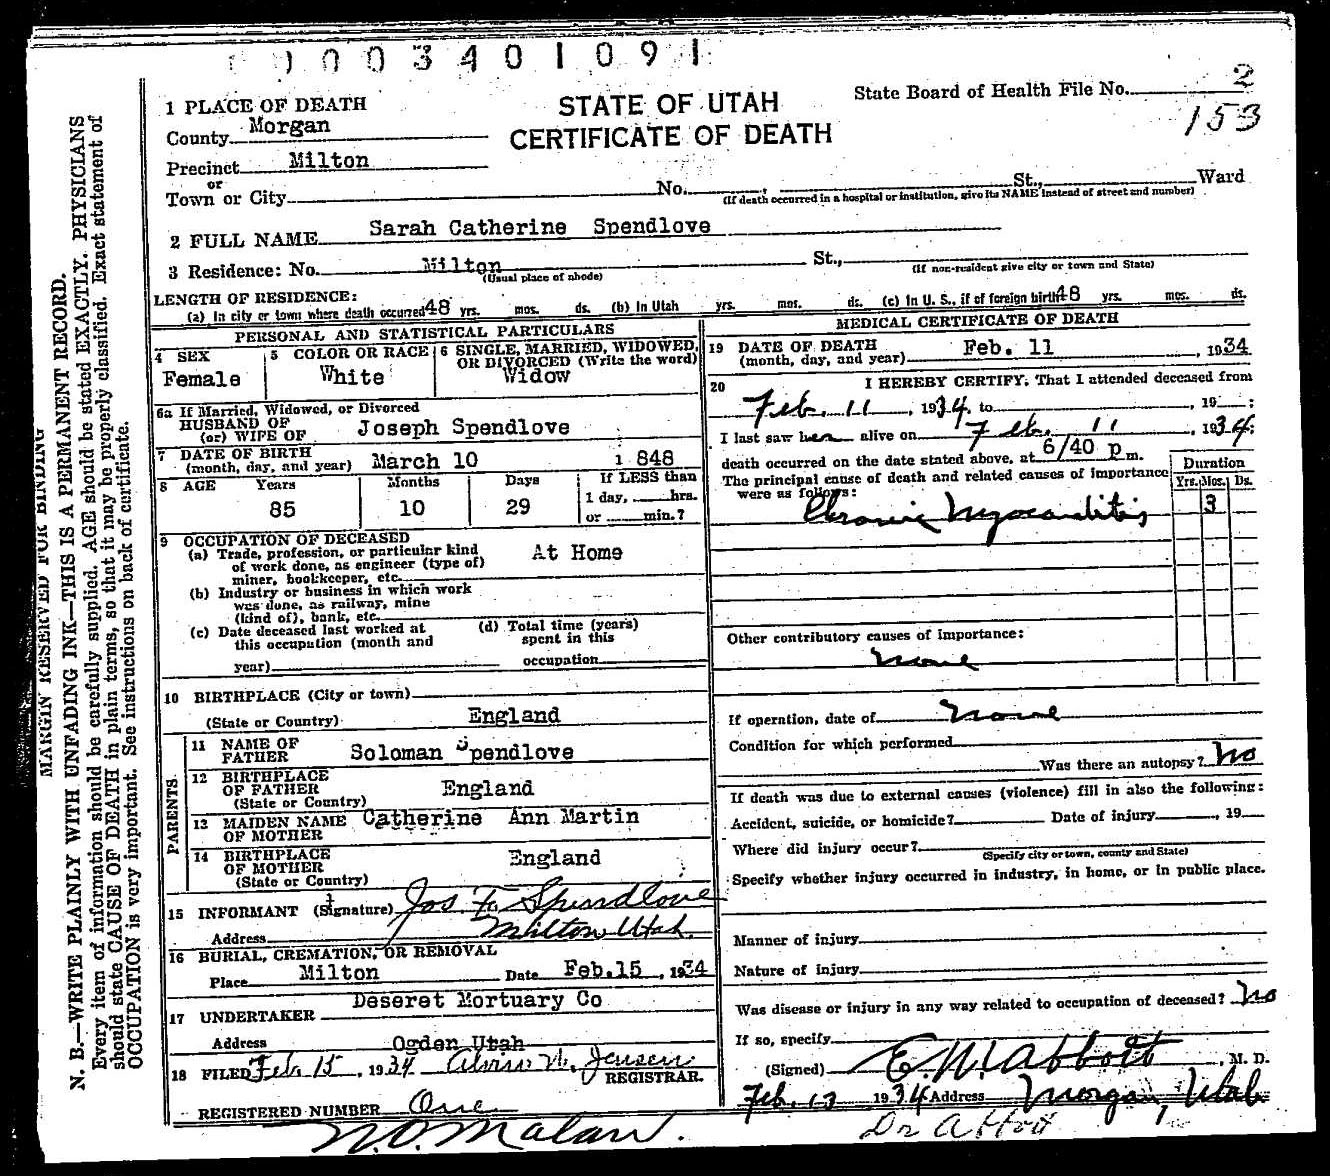 0003401091
1 PLACE OF DEATH
County Morgan
Precinct Milton
or
Town or City No. St., Ward
(If death occurred in a hospital or institution, give its NAME instead of street and number)
STATE OF UTAH
CERTIFICATE OF DEATH
State Board of Health File No. 2
153
2 FULL NAME Sarah Catherine Spendlove
3 Residence: No. Milton St.,
(Usual place of abode) (If non-resident give city or town and State)
LENGTH OF RESIDENCE:
(a) In city or town where death occurred 48 yrs. mos. ds. (b) In Utah yrs. mos. ds. (c) In U. S., if of foreign birth 48 yrs. mos. ds.
PERSONAL AND STATISTICAL PARTICULARS
4 SEX Female
5 COLOR OR RACE White
6 SINGLE, MARRIED, WIDOWED, OR DIVORCED (Write the word) Widow
6a If Married, Widowed, or Divorced
HUSBAND OF
(or) WIFE OF Joseph Spendlove
7 DATE OF BIRTH
(month, day, and year) March 10 1 848
8 AGE Years Months Days If LESS than
85 10 29 1 day, hrs.
or min.?
9 OCCUPATION OF DECEASED
(a) Trade, profession, or particular kind of work done, as engineer (type of) miner, bookkeeper, etc. At Home
(b) Industry or business in which work was done, as railway, mine (kind of), bank, etc.
(c) Date deceased last worked at this occupation (month and year)
(d) Total time (years) spent in this occupation
10 BIRTHPLACE (City or town)
(State or Country) England
PARENTS
11 NAME OF FATHER Soloman Spendlove
12 BIRTHPLACE OF FATHER
(State or Country) England
13 MAIDEN NAME OF MOTHER Catherine Ann Martin
14 BIRTHPLACE OF MOTHER
(State or Country) England
15 INFORMANT (Signature) Jos F. Spendlove
Address Milton Utah.
16 BURIAL, CREMATION, OR REMOVAL
Place Milton Date Feb.15, 1934
17 UNDERTAKER Deseret Mortuary Co
Address Ogden Utah
18 FILED Feb 15, 1934 Alvin W. Jensen
REGISTRAR.
REGISTERED NUMBER One
MEDICAL CERTIFICATE OF DEATH
19 DATE OF DEATH
(month, day, and year) Feb. 11, 1934
20 I HEREBY CERTIFY, That I attended deceased from
Feb. 11, 1934, to , 19 ;
I last saw her alive on Feb. 11, 1934;
death occurred on the date stated above, at 6/40 p m.
The principal cause of death and related causes of importance were as follows:
Duration
Yrs. Mos. Ds.
Chronic Myocarditis 3
Other contributory causes of importance:
none
If operation, date of None
Condition for which performed
Was there an autopsy? No
If death was due to external causes (violence) fill in also the following:
Accident, suicide, or homicide? Date of injury , 19
Where did injury occur?
(Specify city or town, county and State)
Specify whether injury occurred in industry, in home, or in public place.
Manner of injury
Nature of injury
Was disease or injury in any way related to occupation of deceased? No
If so, specify
(Signed) E. W. Abbott, M. D.
Feb. 13 1934 Address Morgan, Utah
Dr Abbott
MARGIN RESERVED FOR BINDING
N. B.—WRITE PLAINLY WITH UNFADING INK—THIS IS A PERMANENT RECORD.
Every item of information should be carefully supplied. AGE should be stated EXACTLY. PHYSICIANS
should state CAUSE OF DEATH in plain terms, so that it may be properly classified. Exact statement of
OCCUPATION is very important. See instructions on back of certificate.